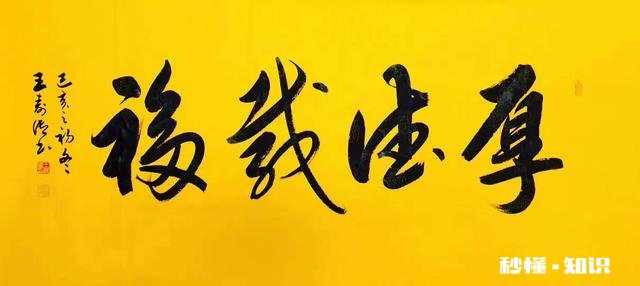 厚德载福
己亥之初冬
王寿书
秒懂·知识